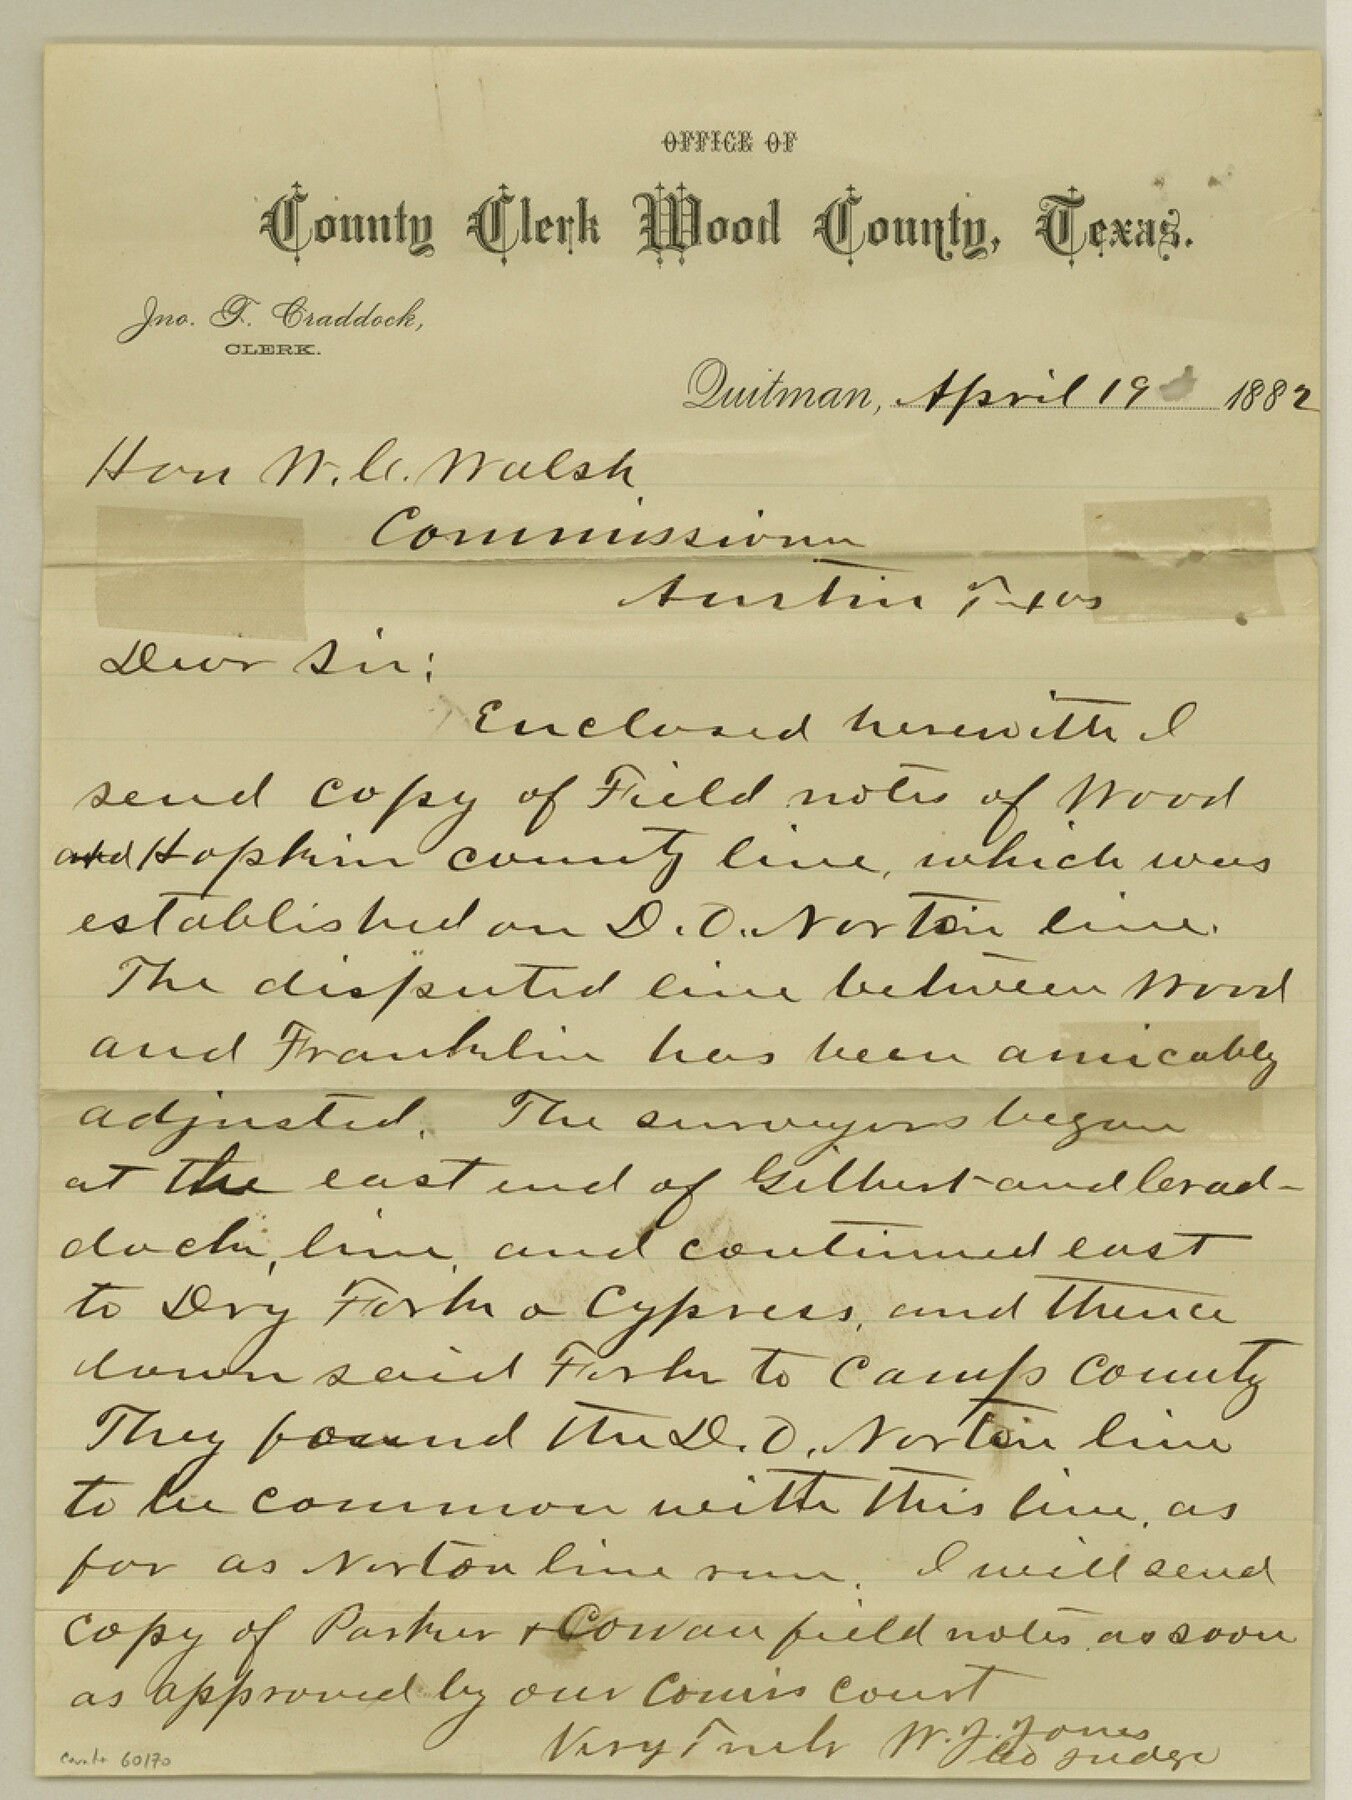 OFFICE OF
County Clerk Wood County, Texas.
Jno. F. Craddock,
CLERK.
Quitman, April 19 1882
Hon W. C. Walsh
Commissioner
Austin Texas
Dear Sir:
Enclosed herewith I
send copy of Field notes of Wood
and Hopkins county line, which was
established on D. O. Norton line.
The disputed line between Wood
and Franklin has been amicably
adjusted. The surveyors began
at the east end of Gilbert and Crad-
dock, line, and continued east
to Dry Fork o Cypress, and thence
down said Fork to Camp County
They found the D. O. Norton line
to be common with this line, as
far as Norton line run. I will send
copy of Parker + Cowan field notes as soon
as approved by our Comrs court
Very Truly W. J. Jones
Co Judge
60170